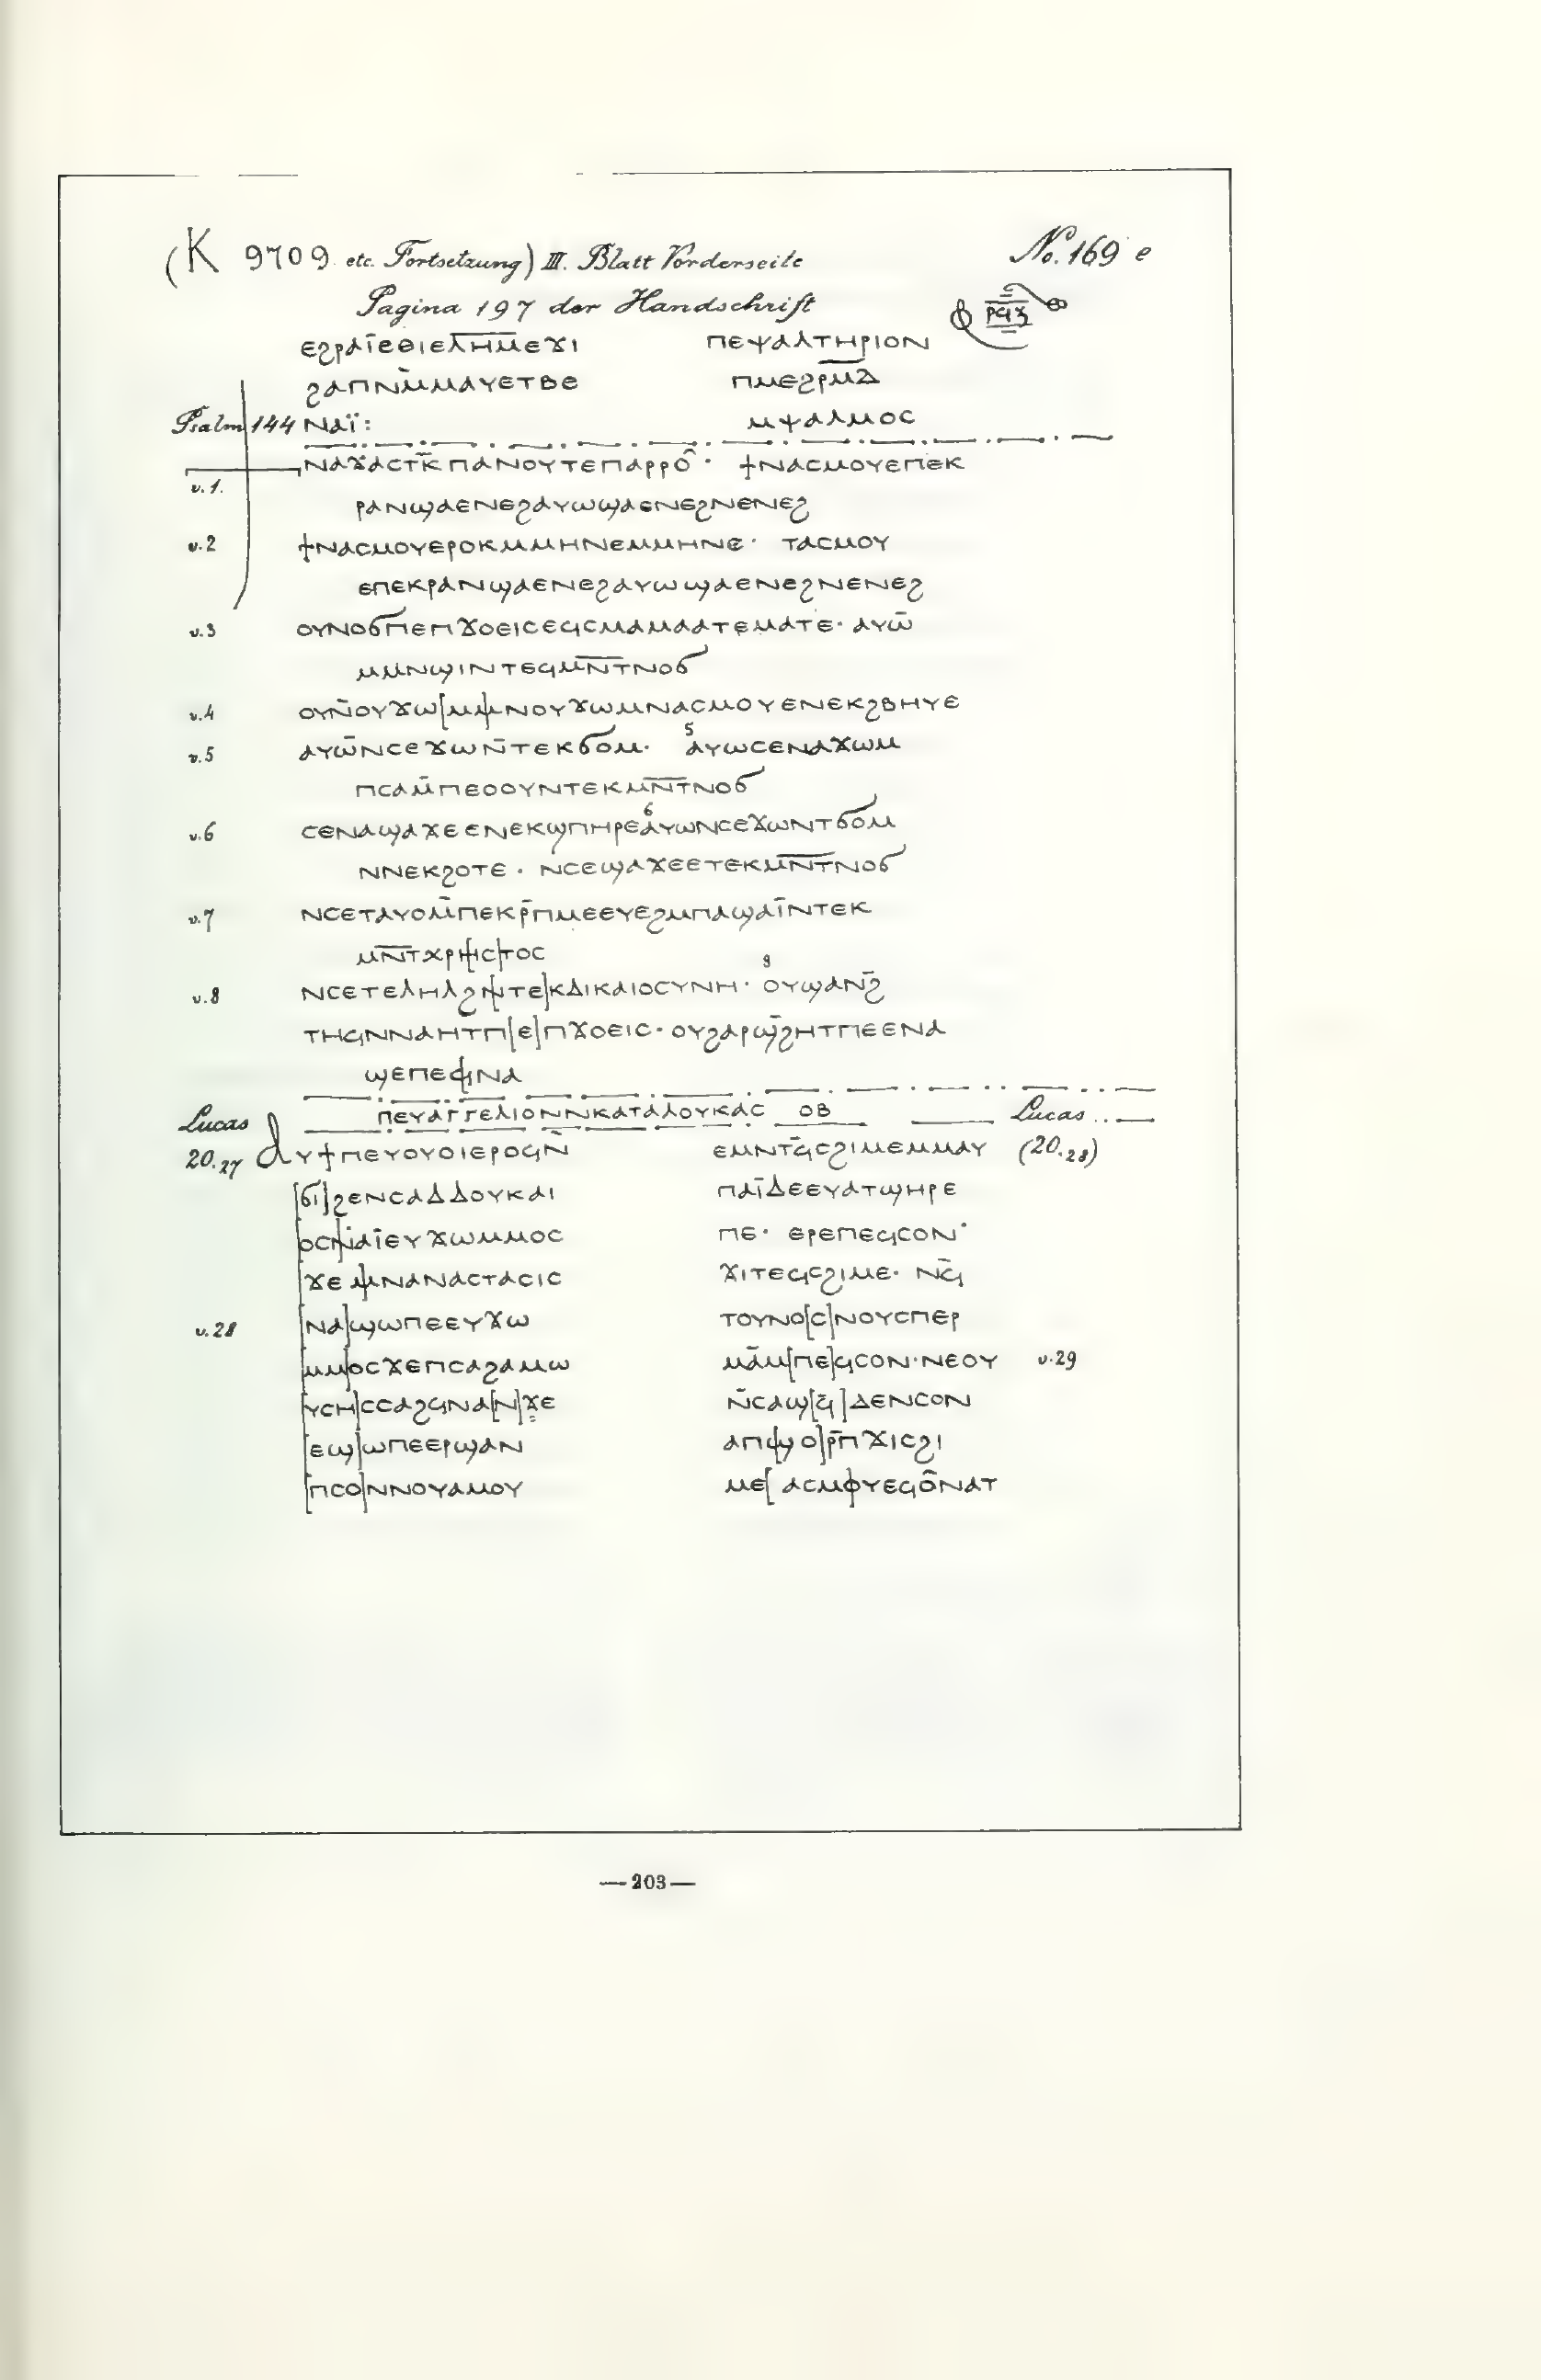 (K 9709 etc. Fortsetzung) III. Blatt Vorderseite
No. 169 e
Pagina 197 der Handschrift
ⲣϥⲍ
ⲉϩⲣⲁⲓ̈ⲉⲑⲓⲉⲗⲏⲙⲉϫⲓ
ϩⲁⲡⲛ̄ⲙⲙⲁⲩⲉⲧⲃⲉ
Psalm 144 ⲛⲁⲓ̈:
ⲡⲉⲯⲁⲗⲧⲏⲣⲓⲟⲛ
ⲡⲙⲉϩⲣⲙ̅ⲇ̅
ⲙⲯⲁⲗⲙⲟⲥ
v.1. ⲛⲁϫⲁⲥⲧⲕ̄ⲡⲁⲛⲟⲩⲧⲉⲡⲁⲣⲣⲟ̂· ϯⲛⲁⲥⲙⲟⲩⲉⲡⲉⲕ
ⲣⲁⲛϣⲁⲉⲛⲉϩⲁⲩⲱϣⲁⲉⲛⲉϩⲛⲉⲛⲉϩ
v.2 ϯⲛⲁⲥⲙⲟⲩⲉⲣⲟⲕⲙⲙⲏⲛⲉⲙⲙⲏⲛⲉ· ⲧⲁⲥⲙⲟⲩ
ⲉⲡⲉⲕⲣⲁⲛϣⲁⲉⲛⲉϩⲁⲩⲱϣⲁⲉⲛⲉϩⲛⲉⲛⲉϩ
v.3 ⲟⲩⲛⲟϭⲡⲉⲡϫⲟⲉⲓⲥⲉϥⲥⲙⲁⲙⲁⲁⲧⲉⲙⲁⲧⲉ· ⲁⲩⲱ̄
ⲙⲙⲛϣⲓⲛⲧⲉϥⲙⲛ̅ⲧ̅ⲛⲟϭ
v.4 ⲟⲩⲛ̄ⲟⲩϫⲱ[ⲙⲙ]ⲛⲟⲩϫⲱⲙⲛⲁⲥⲙⲟⲩⲉⲛⲉⲕϩⲃⲏⲩⲉ
v.5 ⲁⲩⲱ̄ⲛⲥⲉϫⲱⲛ̄ⲧⲉⲕϭⲟⲙ· ⁵ⲁⲩⲱⲥⲉⲛⲁϫⲱⲙ
ⲡⲥⲁⲙ̄ⲡⲉⲟⲟⲩⲛⲧⲉⲕⲙⲛ̅ⲧ̅ⲛⲟϭ
v.6 ⲥⲉⲛⲁϣⲁϫⲉⲉⲛⲉⲕϣⲡⲏⲣⲉ⁶ⲁⲩⲱⲛⲥⲉϫⲱⲛⲧϭⲟⲙ
ⲛⲛⲉⲕϩⲟⲧⲉ· ⲛ̄ⲥⲉϣⲁϫⲉⲉⲧⲉⲕⲙⲛ̅ⲧ̅ⲛⲟϭ
v.7 ⲛⲥⲉⲧⲁⲩⲟⲙ̄ⲡⲉⲕⲣ̄ⲡⲙⲉⲉⲩⲉϩⲙⲡⲁϣⲁⲓ̈ⲛⲧⲉⲕ
ⲙⲛ̅ⲧ̅ⲭⲣ[ⲏⲥ]ⲧⲟⲥ
v.8 ⲛⲥⲉⲧⲉⲗⲏⲗϩ[ⲛⲧⲉ]ⲕⲇⲓⲕⲁⲓⲟⲥⲩⲛⲏ· ⁸ⲟⲩϣⲁⲛϩ̄
ⲧⲏϥⲛⲛⲁⲏⲧⲡ[ⲉ]ⲡϫⲟⲉⲓⲥ· ⲟⲩϩⲁⲣϣ̄ϩⲏⲧⲡⲉⲉⲛⲁ
ϣⲉⲡⲉϥⲛⲁ
ⲡⲉⲩⲁⲅⲅⲉⲗⲓⲟⲛⲛⲕⲁⲧⲁⲗⲟⲩⲕⲁⲥ ⲟⲃ
Lucas 20.27 ⲁⲩϯⲡⲉⲩⲟⲩⲟⲓⲉⲣⲟϥⲛ̄
[ϭⲓ]ϩⲉⲛⲥⲁⲇⲇⲟⲩⲕⲁⲓ
[ⲟⲥ]ⲛⲁⲓ̈ⲉⲩϫⲱⲙⲙⲟⲥ
[ϫⲉ ⲙ]ⲛⲁⲛⲁⲥⲧⲁⲥⲓⲥ
v.28 [ⲛⲁ]ϣⲱⲡⲉⲉⲩϫⲱ
[ⲙⲙ]ⲟⲥϫⲉⲡⲥⲁϩⲁⲙⲱ
[ⲩⲥⲏ]ⲥⲥⲁϩϥⲛⲁ[ⲛ]ϫⲉ
[ⲉϣ]ⲱⲡⲉⲉⲣϣⲁⲛ
[ⲡⲥⲟ]ⲛⲛⲟⲩⲁⲙⲟⲩ
Lucas (20.28)
ⲉⲙⲛⲧⲁ̄ϥⲥϩⲓⲙⲉⲙⲙⲁⲩ
ⲡⲁⲓ̈ⲇⲉⲉⲩⲁⲧϣⲏⲣⲉ
ⲡⲉ· ⲉⲣⲉⲡⲉϥⲥⲟⲛ·
ϫⲓⲧⲉϥⲥϩⲓⲙⲉ· ⲛϥ̄
ⲧⲟⲩⲛⲟ[ⲥ]ⲛⲟⲩⲥⲡⲉⲣ
ⲙⲁ̄ⲙ[ⲡⲉ]ϥⲥⲟⲛ·ⲛⲉⲟⲩ v.29
ⲛ̄ⲥⲁϣ[ϥ̄]ⲇⲉⲛⲥⲟⲛ
ⲁⲡ[ϣⲟ]ⲣ̄ⲡϫⲓⲥϩⲓ
ⲙⲉ[ ⲁϥⲙ]ⲟⲩⲉϥⲟ̂ⲛⲁⲧ
—203—